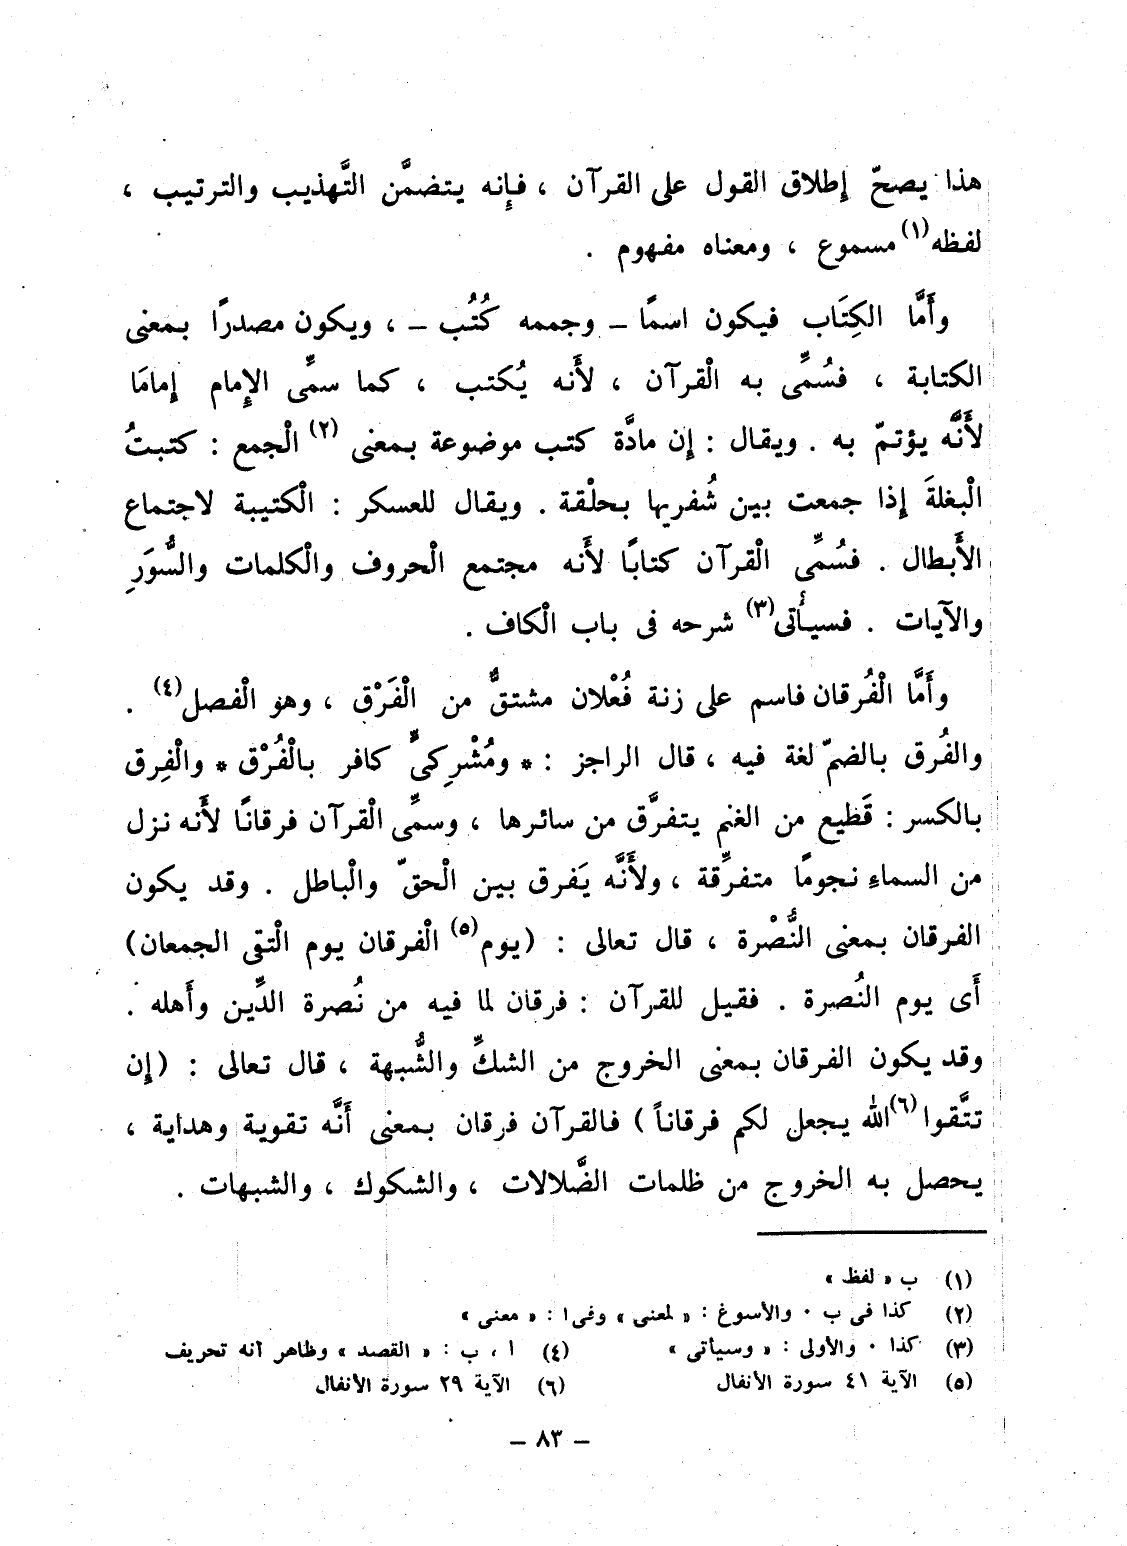 هذا يصحّ إطلاق القول على القرآن ، فإنه يتضمَّن التَّهذيب والترتيب ،
لفظه(١) مسموع ، ومعناه مفهوم .
وأَمَّا الكِتَاب فيكون اسمًا – وجممه كُتُب – ، ويكون مصدرًا بمعنى
الكتابة ، فسُمِّى به الْقرآن ، لأَنه يُكتب ، كما سمِّى الإِمام إِمامَا
لأَنَّه يؤتمّ به . ويقال : إِن مادَّة كتب موضوعة بمعنى (٢) الْجمع : كتبتُ
الْبغلةَ إِذا جمعت بين شُفريها بحلْقة . ويقال للعسكر : الْكتيبة لاجتماع
الأَبطال . فسُمِّى الْقرآن كتابًا لأَنه مجتمع الْحروف والْكلمات والسُّوَرِ
والآيات . فسيأْتى(٣) شرحه فى باب الْكاف .
وأَمَّا الْفُرقان فاسم على زنة فُعْلان مشتقٌّ من الْفَرْق ، وهو الْفصل(٤) .
والفُرق بالضمّ لغة فيه ، قال الراجز : * ومُشْرِكىٌّ كافر بالْفُرْق * والْفِرق
بالكسر : قَطيع من الغنم يتفرَّق من سائرها ، وسمِّى الْقرآن فرقانًا لأَنه نزل
من السماءِ نجومًا متفرِّقة ، ولأَنَّه يَفرق بين الْحقّ والْباطل . وقد يكون
الفرقان بمعنى النُّصْرة ، قال تعالى : (يوم(٥) الْفرقان يوم الْتقى الجمعان)
أَى يوم النُصرة . فقيل للقرآن : فرقان لما فيه من نُصرة الدِّين وأَهله .
وقد يكون الفرقان بمعنى الخروج من الشكِّ والشُّبهة ، قال تعالى : (إِن
تتَّقوا(٦) الله يجعل لكم فرقاناً ) فالقرآن فرقان بمعنى أَنَّه تقوية وهداية ،
يحصل به الخروج من ظلمات الضَّلالات ، والشكوك ، والشبهات .
(١) ب « لفظ »
(٢) كذا فى ب ٠ والأسوغ : « لمعنى » وفى ا : « معنى »
(٣) كذا ٠ والأولى : « وسيأتى » (٤) ا ، ب : « القصد » وظاهر أنه تحريف
(٥) الآية ٤١ سورة الأنفال (٦) الآية ٢٩ سورة الأنفال
– ٨٣ –